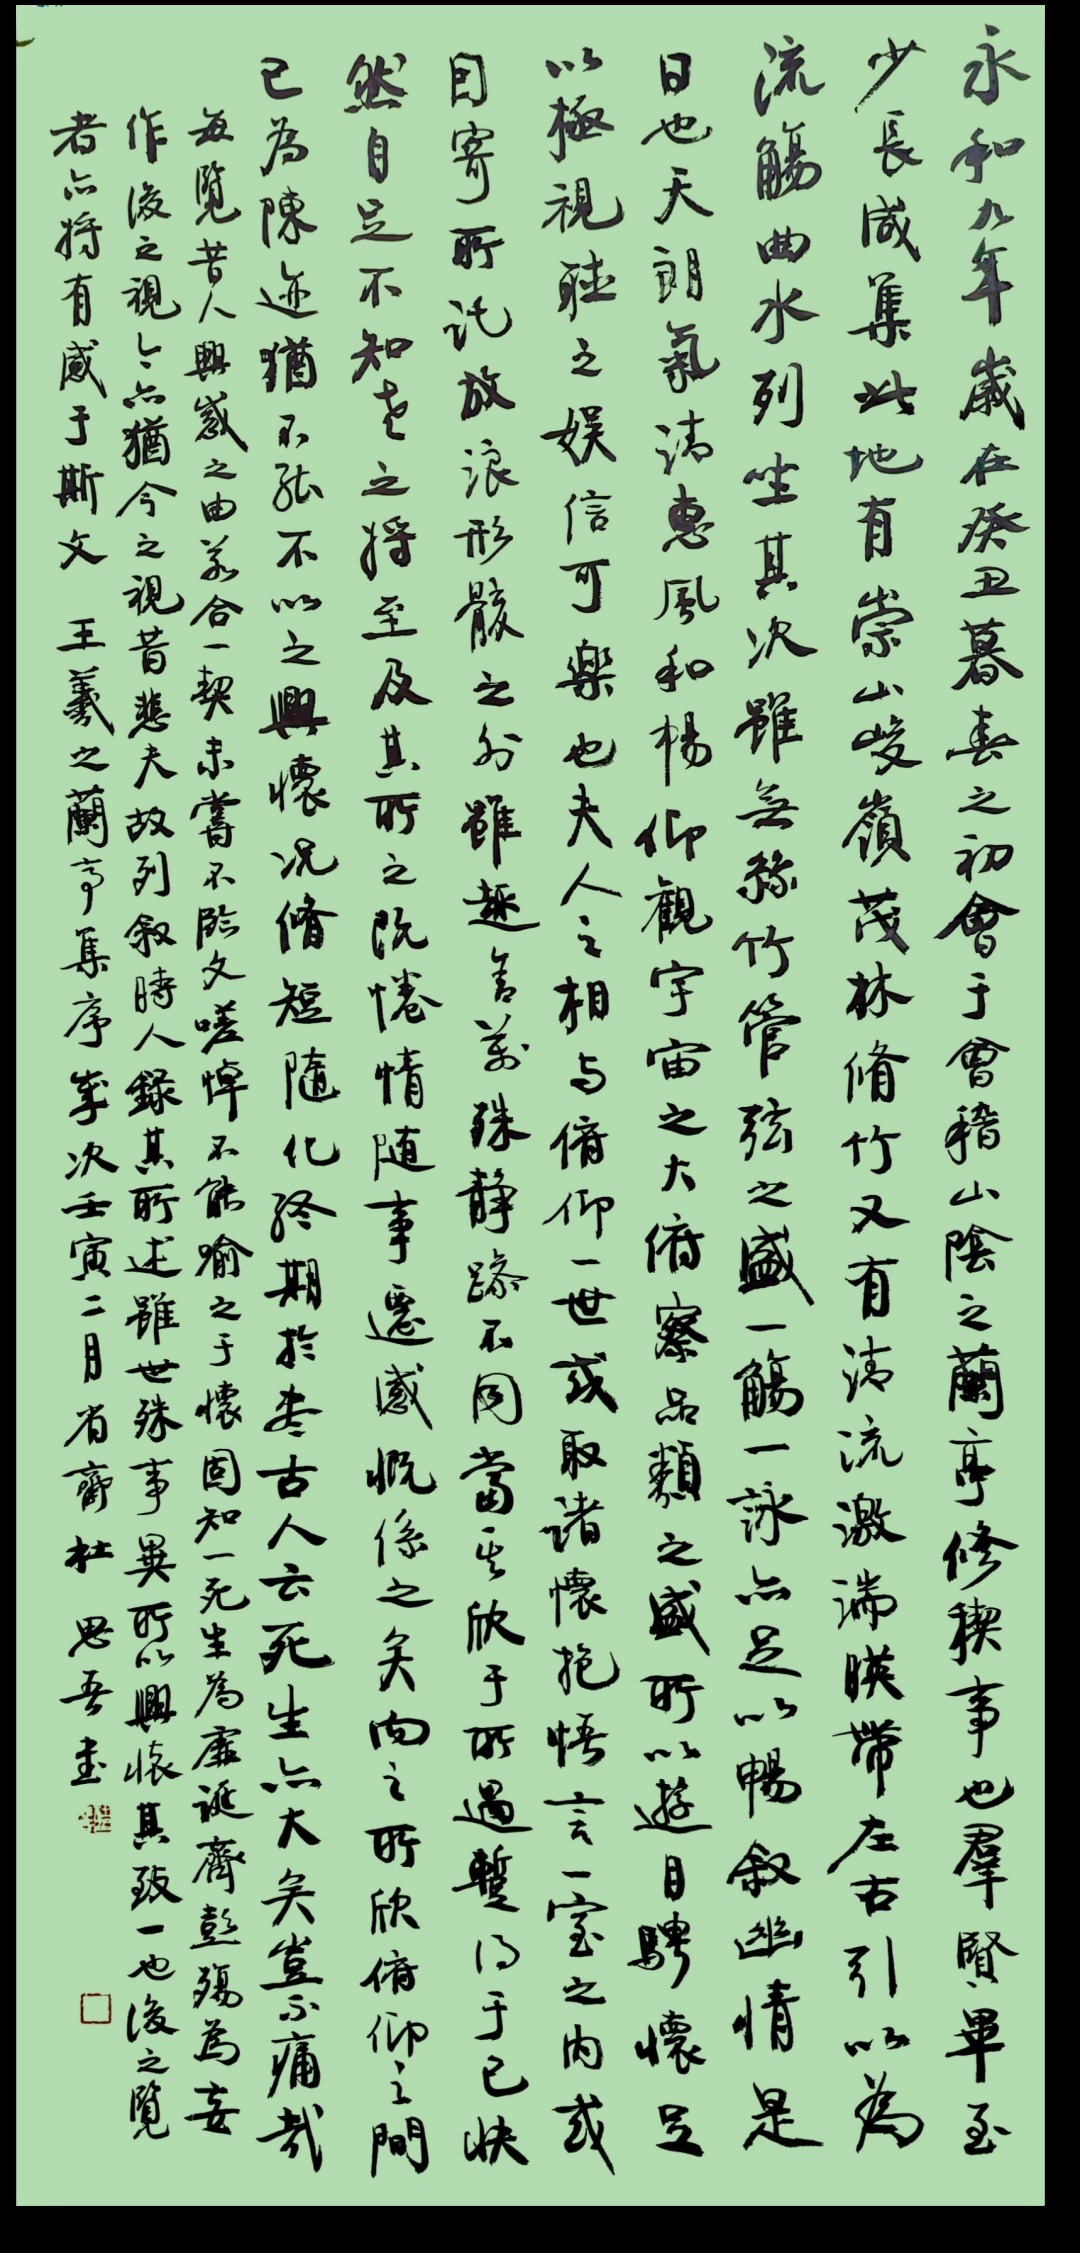 永和九年歲在癸丑暮春之初會于會稽山陰之蘭亭修稧事也羣賢畢至
少長咸集此地有崇山峻嶺茂林脩竹又有清流激湍暎帶左右引以為
流觴曲水列坐其次雖無絲竹管弦之盛一觴一詠亦足以暢敘幽情是
日也天朗氣清惠風和暢仰觀宇宙之大俯察品類之盛所以遊目騁懷足
以極視聽之娛信可樂也夫人之相與俯仰一世或取諸懷抱悟言一室之內或
因寄所託放浪形骸之外雖趣舍萬殊靜躁不同當其欣于所遇暫得于己快
然自足不知老之將至及其所之既惓情隨事遷感慨係之矣向之所欣俯仰之間
已為陳迹猶不能不以之興懷況脩短隨化終期於盡古人云死生亦大矣豈不痛哉
每覽昔人興感之由若合一契未嘗不臨文嗟悼不能喻之于懷固知一死生為虛誕齊彭殤為妄
作後之視今亦猶今之視昔悲夫故列敘時人錄其所述雖世殊事異所以興懷其致一也後之覽
者亦將有感于斯文 王羲之蘭亭集序 歲次壬寅二月省齋杜思吾書